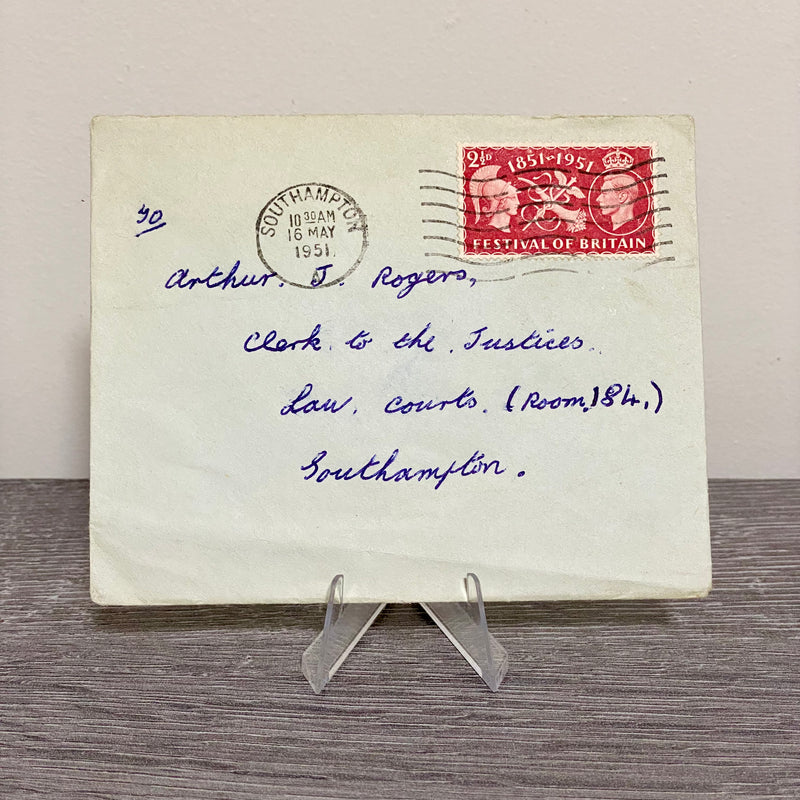 2½D 1851-1951
FESTIVAL OF BRITAIN
SOUTHAMPTON
10 30 AM
16 MAY
1951
A
Arthur. J. Rogers,
Clerk to the Justices.
Law. Courts. (Room, 184,)
Southampton.